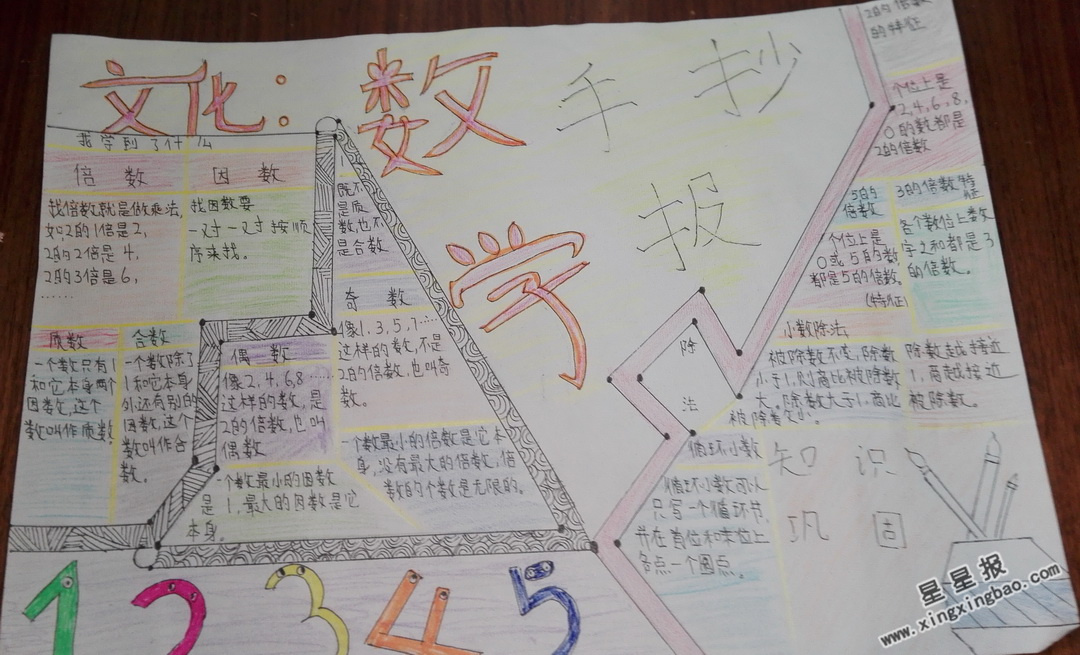 文化：数学
手抄报
我学到了什么
倍数
找倍数就是做乘法，
如2的1倍是2，
2的2倍是4，
2的3倍是6，
……
因数
找因数要
一对一对按顺
序来找。
1
既不
是质
数，也不
是合数
质数
一个数只有1
和它本身两个
因数，这个
数叫作质数
合数
一个数除了
1和它本身
外还有别的
因数，这个
数叫作合
数。
偶数
像2，4，6，8……
这样的数，是
2的倍数，也叫
偶数
奇数
像1、3、5、7……
这样的数，不是
2的倍数，也叫奇
数。
一个数最小的因数
是1，最大的因数是它
本身。
一个数最小的倍数是它本
身，没有最大的倍数，倍
数的个数是无限的。
2的倍数
的特征
个位上是
2，4，6，8，
0的数都是
2的倍数
5的
倍数
个位上是
0或5的数，
都是5的倍数。
(特征)
3的倍数特征
各个数位上数
字之和都是3
的倍数。
除法
小数除法
被除数不变，除数
小于1，则商比被除数
大，除数大于1，商比
被除数小。
除数越接近
1，商越接近
被除数。
循环小数
循环小数可以
只写一个循环节，
并在首位和末位上
各点一个圆点。
知识
巩固
1 2 3 4 5
星星报
www.xingxingbao.com